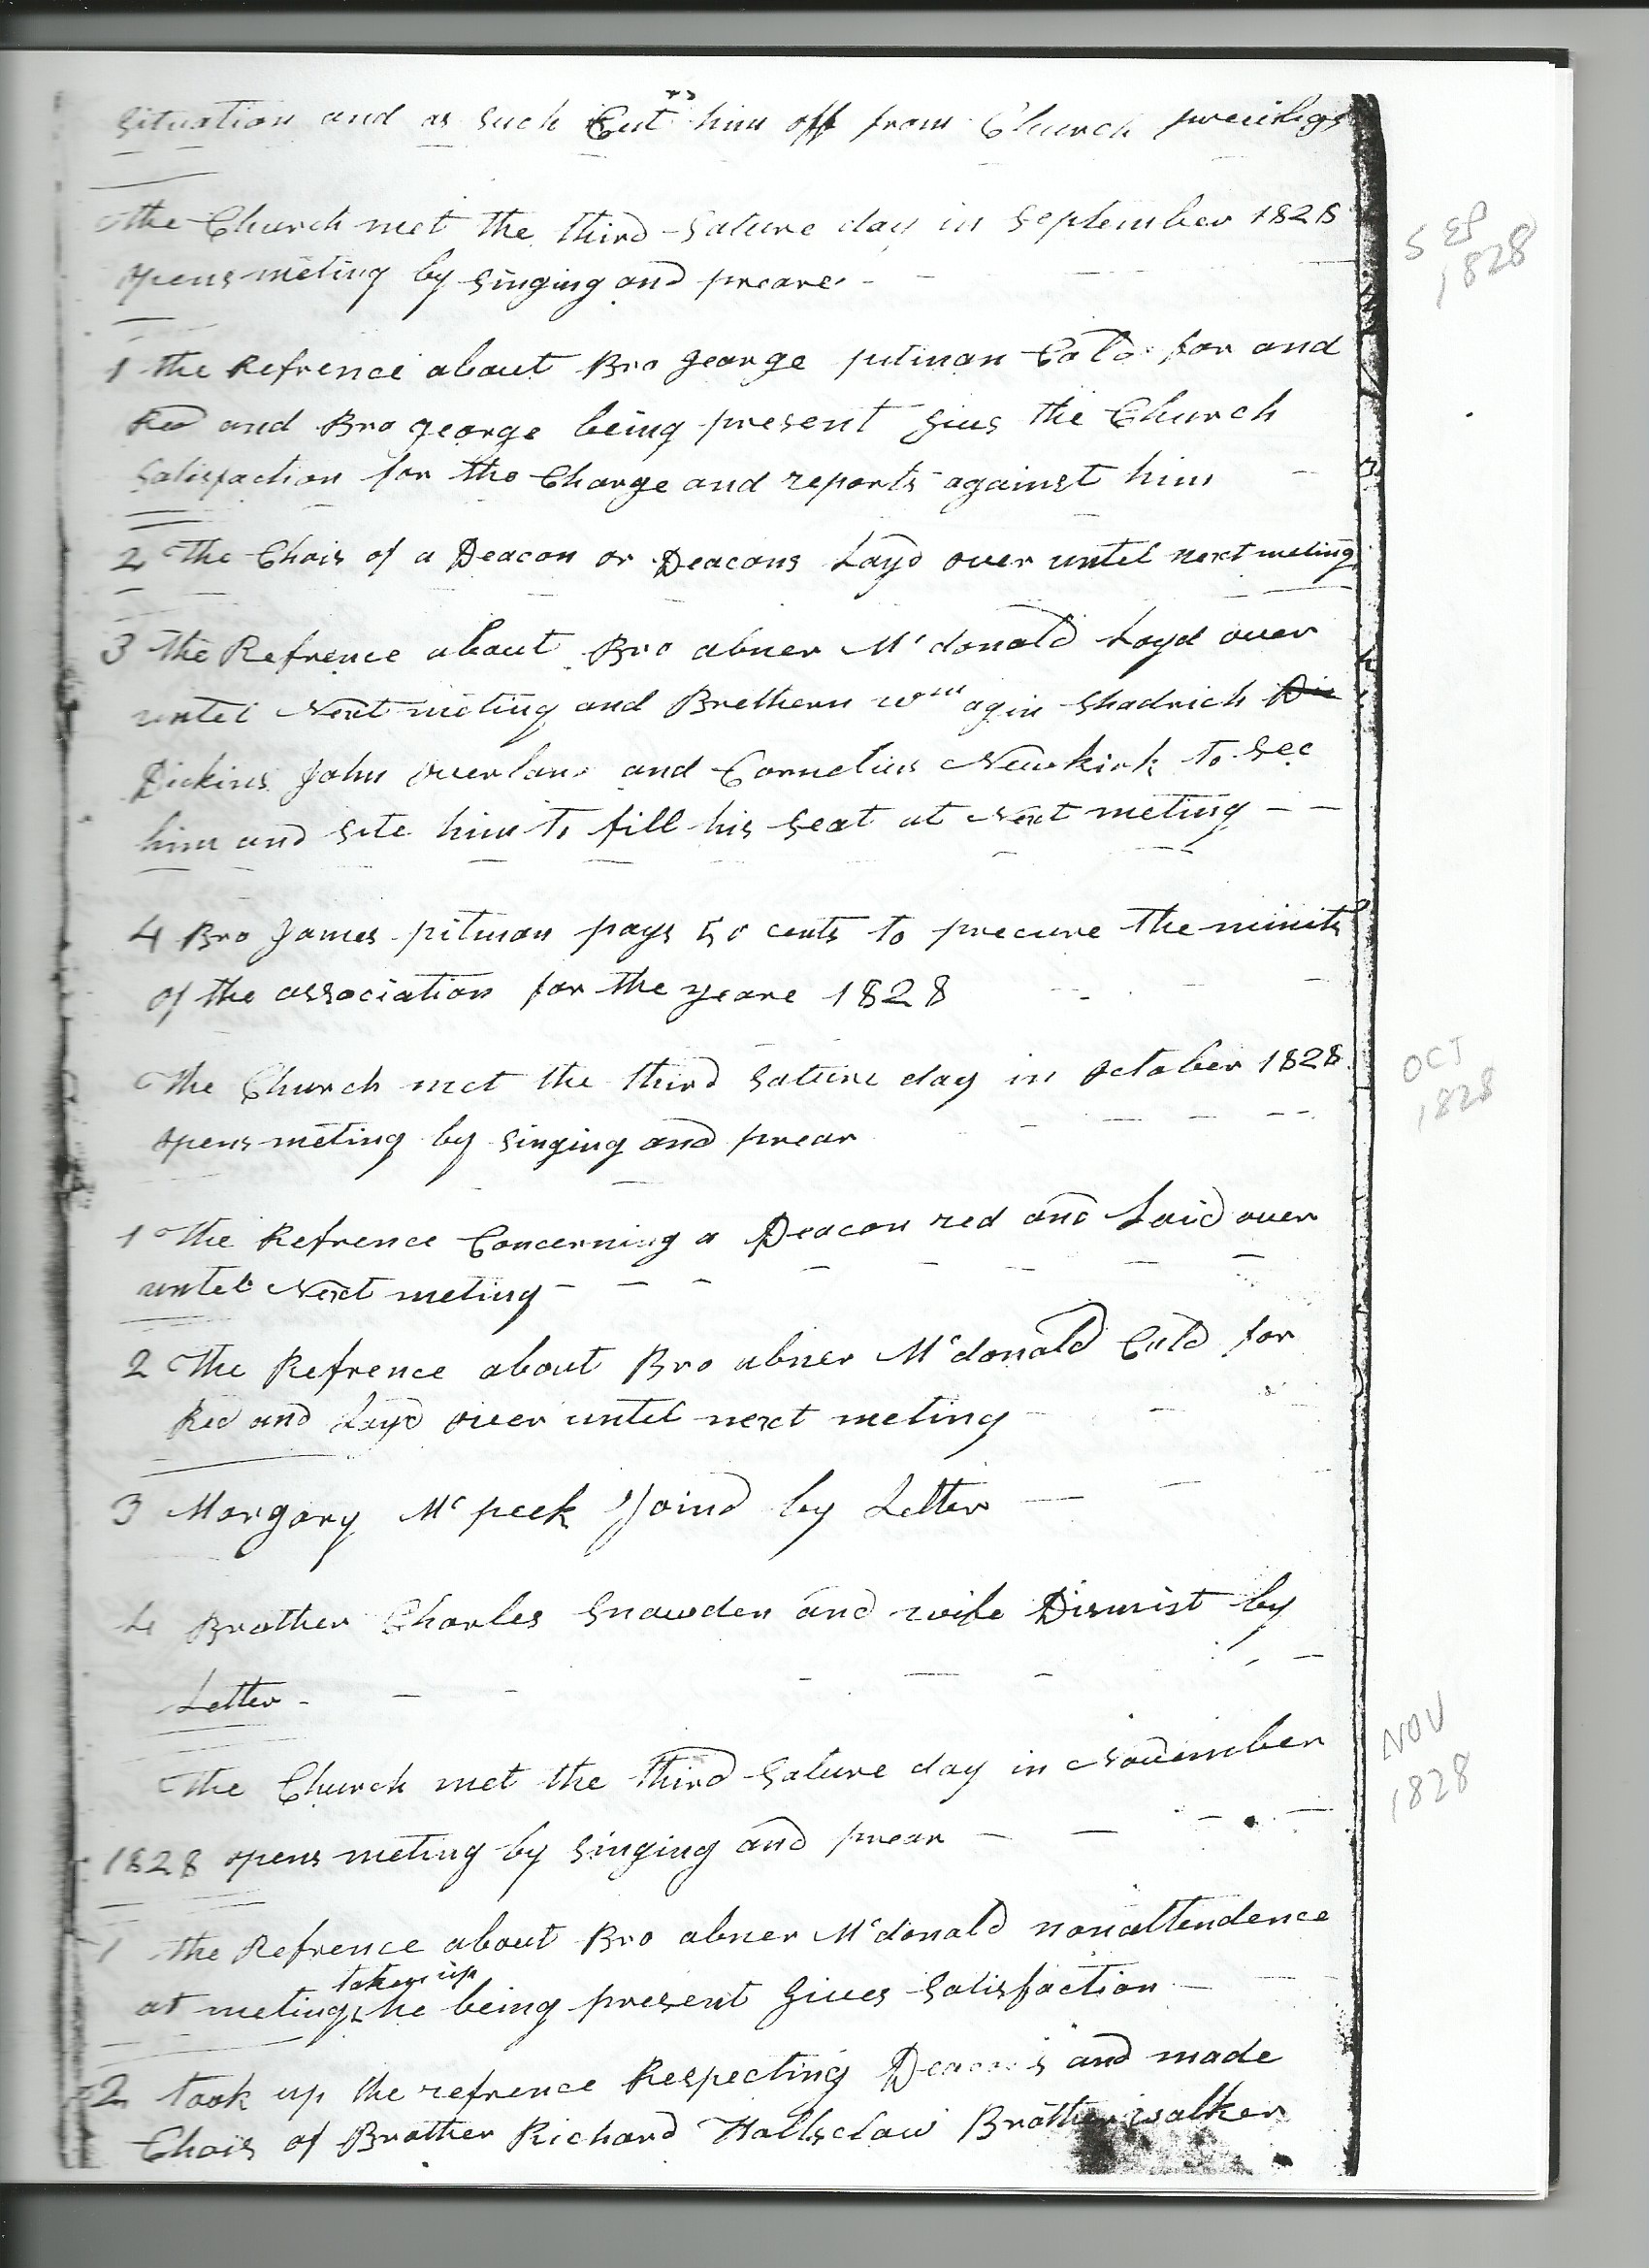 Situation and as such Cuts him off from Church privilegs
the Church met the third Sature day in September 1828
SEP
1828
opens meting by singing and preare
1 the Refrence about Bro george pitman Cald for and
Red and Bro george being present gives the Church
Satisfaction for the Charge and reports against him
2 The Chois of a Deacon or Deacons Layd over until next meting
3 The Refrence about Bro abner Mc donald Layd over
until Next meting and Brethern Wm agin Shadrich Di
Dickins John overlans and Cornelius Newkirk to See
him and Site him to fill his Seat at Next meting
4 Bro James pitman pays 50 cents to precure the minits
of the association for the yeare 1828
The Church met the third Sature day in october 1828
OCT
1828
opens meting by singing and prear
1 The Refrence Concerning a Deacon red and Laid over
until Next meting
2 The Refrence about Bro abner Mc donald Cald for
Red and Layd over until next meting
3 Margary Mc peek Joind by Letter
4 Brother Charles Snowden and wife Dismist by
Letter
The Church met the third Sature day in November
NOV
1828
1828 opens meting by singing and prear
1 the Refrence about Bro abner Mc donald nonattendence
taken up
at meting he being present Gives Satisfaction
2 took up the refrence Respecting Deacons and made
Chois of Brother Richard Hallsclaw Brother walker